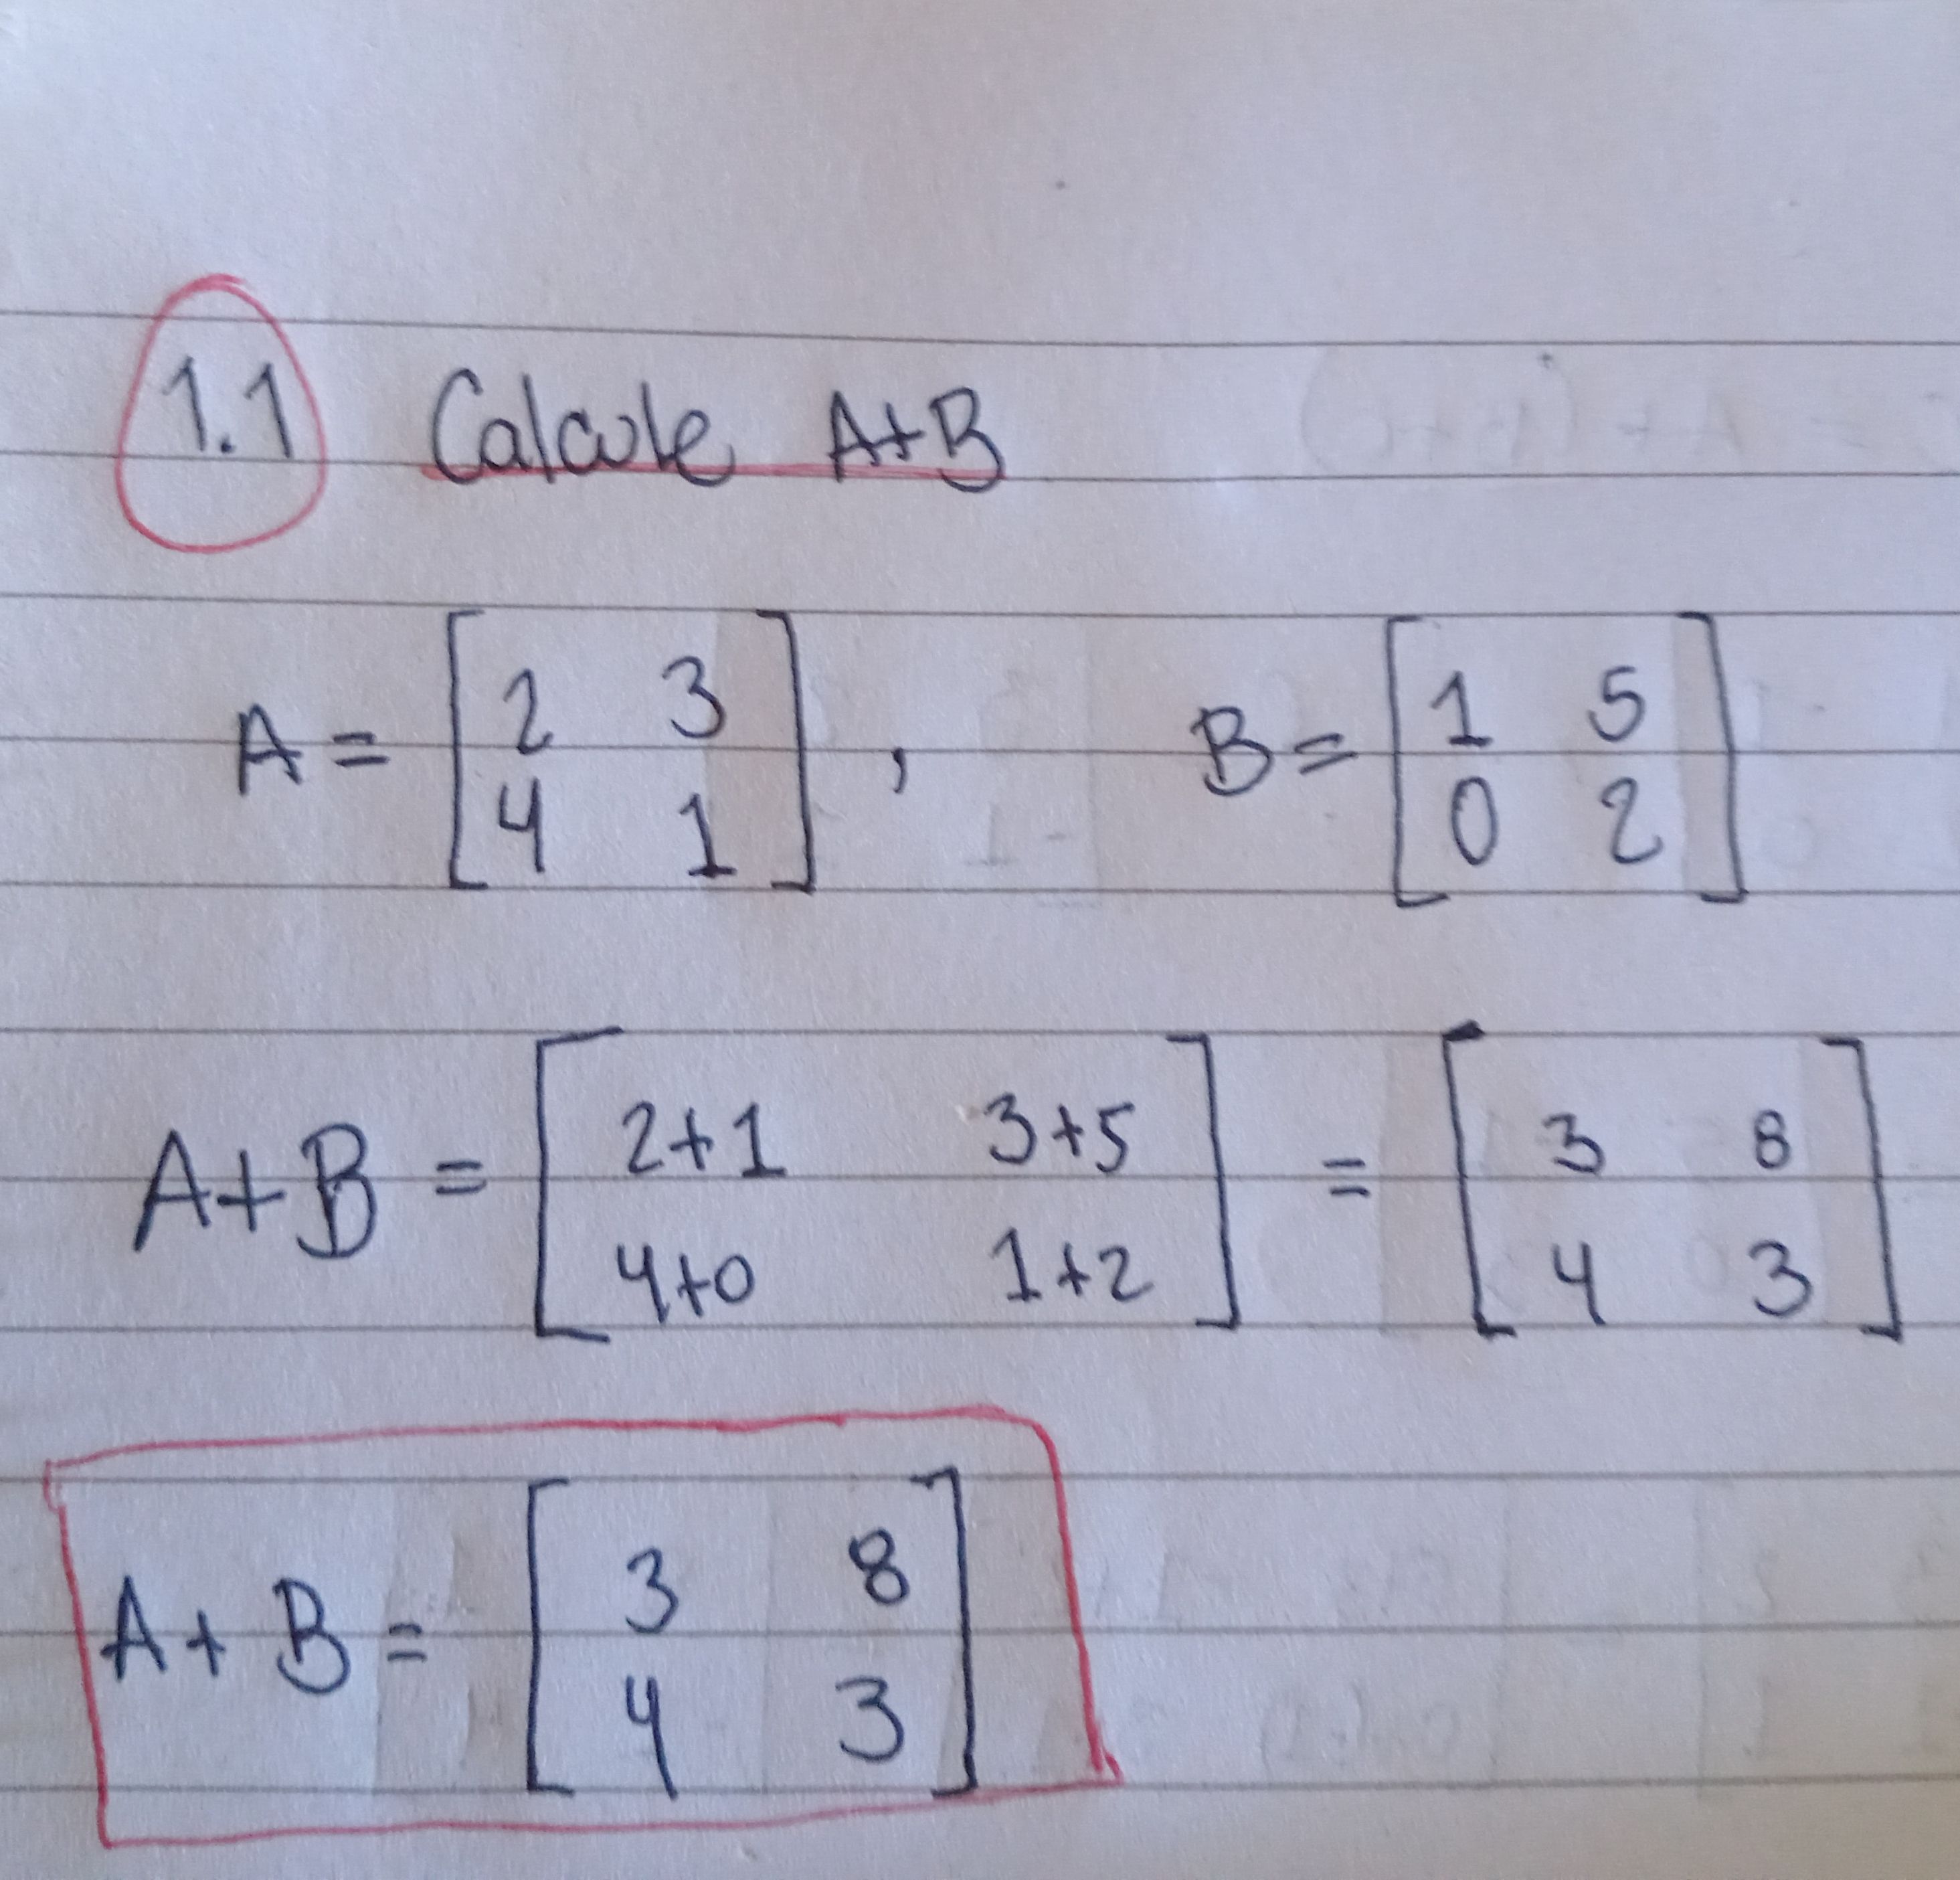 1.1 Calcule A+B
A = [ 2 3 ] , B = [ 1 5 ]
[ 4 1 ] [ 0 2 ]
A+B = [ 2+1 3+5 ] = [ 3 8 ]
[ 4+0 1+2 ] [ 4 3 ]
A + B = [ 3 8 ]
[ 4 3 ]